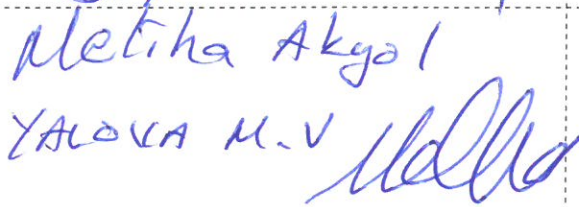 Meliha Akyol
YALOVA M.V